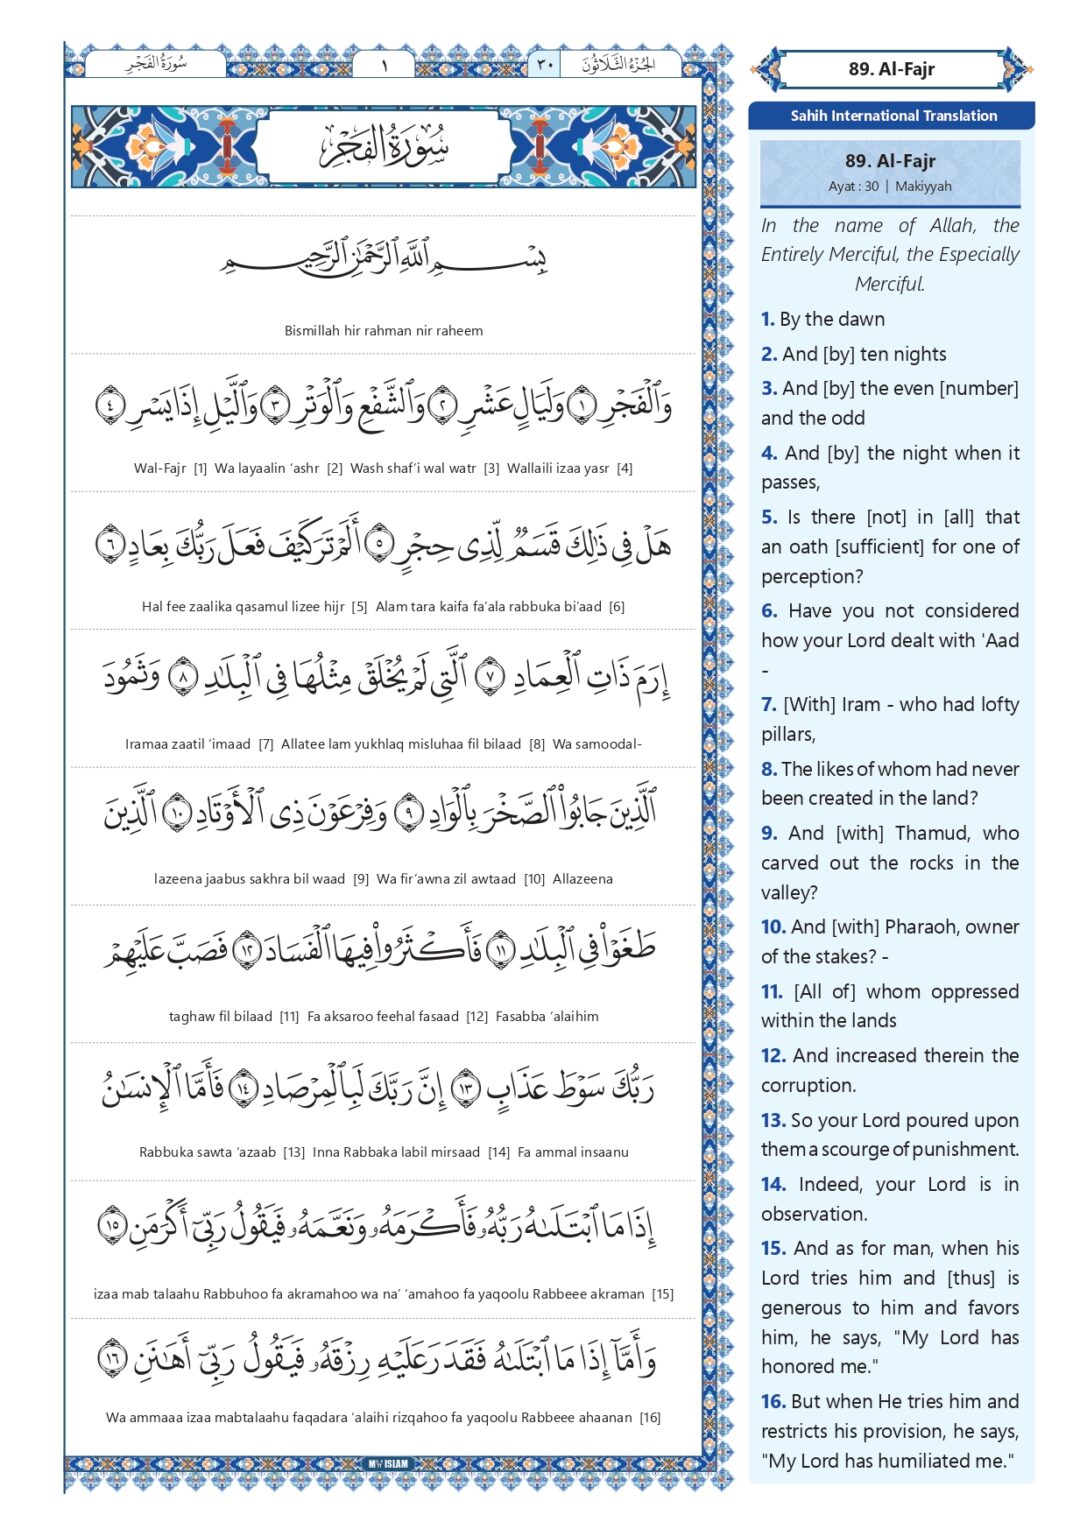 سُورَةُ الفَجْرِ
١
٣٠
الجُزْءُ الثَّلَاثُونَ
سُورَةُ الفَجْرِ
بِسْمِ ٱللَّهِ ٱلرَّحْمَٰنِ ٱلرَّحِيمِ
Bismillah hir rahman nir raheem
وَٱلْفَجْرِ ١ وَلَيَالٍ عَشْرٍ ٢ وَٱلشَّفْعِ وَٱلْوَتْرِ ٣ وَٱلَّيْلِ إِذَا يَسْرِ ٤
Wal-Fajr [1] Wa layaalin ‘ashr [2] Wash shaf’i wal watr [3] Wallaili izaa yasr [4]
هَلْ فِى ذَٰلِكَ قَسَمٌ لِّذِى حِجْرٍ ٥ أَلَمْ تَرَ كَيْفَ فَعَلَ رَبُّكَ بِعَادٍ ٦
Hal fee zaalika qasamul lizee hijr [5] Alam tara kaifa fa’ala rabbuka bi’aad [6]
إِرَمَ ذَاتِ ٱلْعِمَادِ ٧ ٱلَّتِى لَمْ يُخْلَقْ مِثْلُهَا فِى ٱلْبِلَٰدِ ٨ وَثَمُودَ
Iramaa zaatil ‘imaad [7] Allatee lam yukhlaq misluhaa fil bilaad [8] Wa samoodal-
ٱلَّذِينَ جَابُوا۟ ٱلصَّخْرَ بِٱلْوَادِ ٩ وَفِرْعَوْنَ ذِى ٱلْأَوْتَادِ ١٠ ٱلَّذِينَ
lazeena jaabus sakhra bil waad [9] Wa fir’awna zil awtaad [10] Allazeena
طَغَوْا۟ فِى ٱلْبِلَٰدِ ١١ فَأَكْثَرُوا۟ فِيهَا ٱلْفَسَادَ ١٢ فَصَبَّ عَلَيْهِمْ
taghaw fil bilaad [11] Fa aksaroo feehal fasaad [12] Fasabba ‘alaihim
رَبُّكَ سَوْطَ عَذَابٍ ١٣ إِنَّ رَبَّكَ لَبِٱلْمِرْصَادِ ١٤ فَأَمَّا ٱلْإِنسَٰنُ
Rabbuka sawta ‘azaab [13] Inna Rabbaka labil mirsaad [14] Fa ammal insaanu
إِذَا مَا ٱبْتَلَىٰهُ رَبُّهُۥ فَأَكْرَمَهُۥ وَنَعَّمَهُۥ فَيَقُولُ رَبِّىٓ أَكْرَمَنِ ١٥
izaa mab talaahu Rabbuhoo fa akramahoo wa na’ ‘amahoo fa yaqoolu Rabbeee akraman [15]
وَأَمَّآ إِذَا مَا ٱبْتَلَىٰهُ فَقَدَرَ عَلَيْهِ رِزْقَهُۥ فَيَقُولُ رَبِّىٓ أَهَٰنَنِ ١٦
Wa ammaaa izaa mabtalaahu faqadara ‘alaihi rizqahoo fa yaqoolu Rabbeee ahaanan [16]
MY ISLAM
89. Al-Fajr
Sahih International Translation
89. Al-Fajr
Ayat : 30 | Makiyyah
In the name of Allah, the
Entirely Merciful, the Especially
Merciful.
1. By the dawn
2. And [by] ten nights
3. And [by] the even [number]
and the odd
4. And [by] the night when it
passes,
5. Is there [not] in [all] that
an oath [sufficient] for one of
perception?
6. Have you not considered
how your Lord dealt with 'Aad
-
7. [With] Iram - who had lofty
pillars,
8. The likes of whom had never
been created in the land?
9. And [with] Thamud, who
carved out the rocks in the
valley?
10. And [with] Pharaoh, owner
of the stakes? -
11. [All of] whom oppressed
within the lands
12. And increased therein the
corruption.
13. So your Lord poured upon
them a scourge of punishment.
14. Indeed, your Lord is in
observation.
15. And as for man, when his
Lord tries him and [thus] is
generous to him and favors
him, he says, "My Lord has
honored me."
16. But when He tries him and
restricts his provision, he says,
"My Lord has humiliated me."